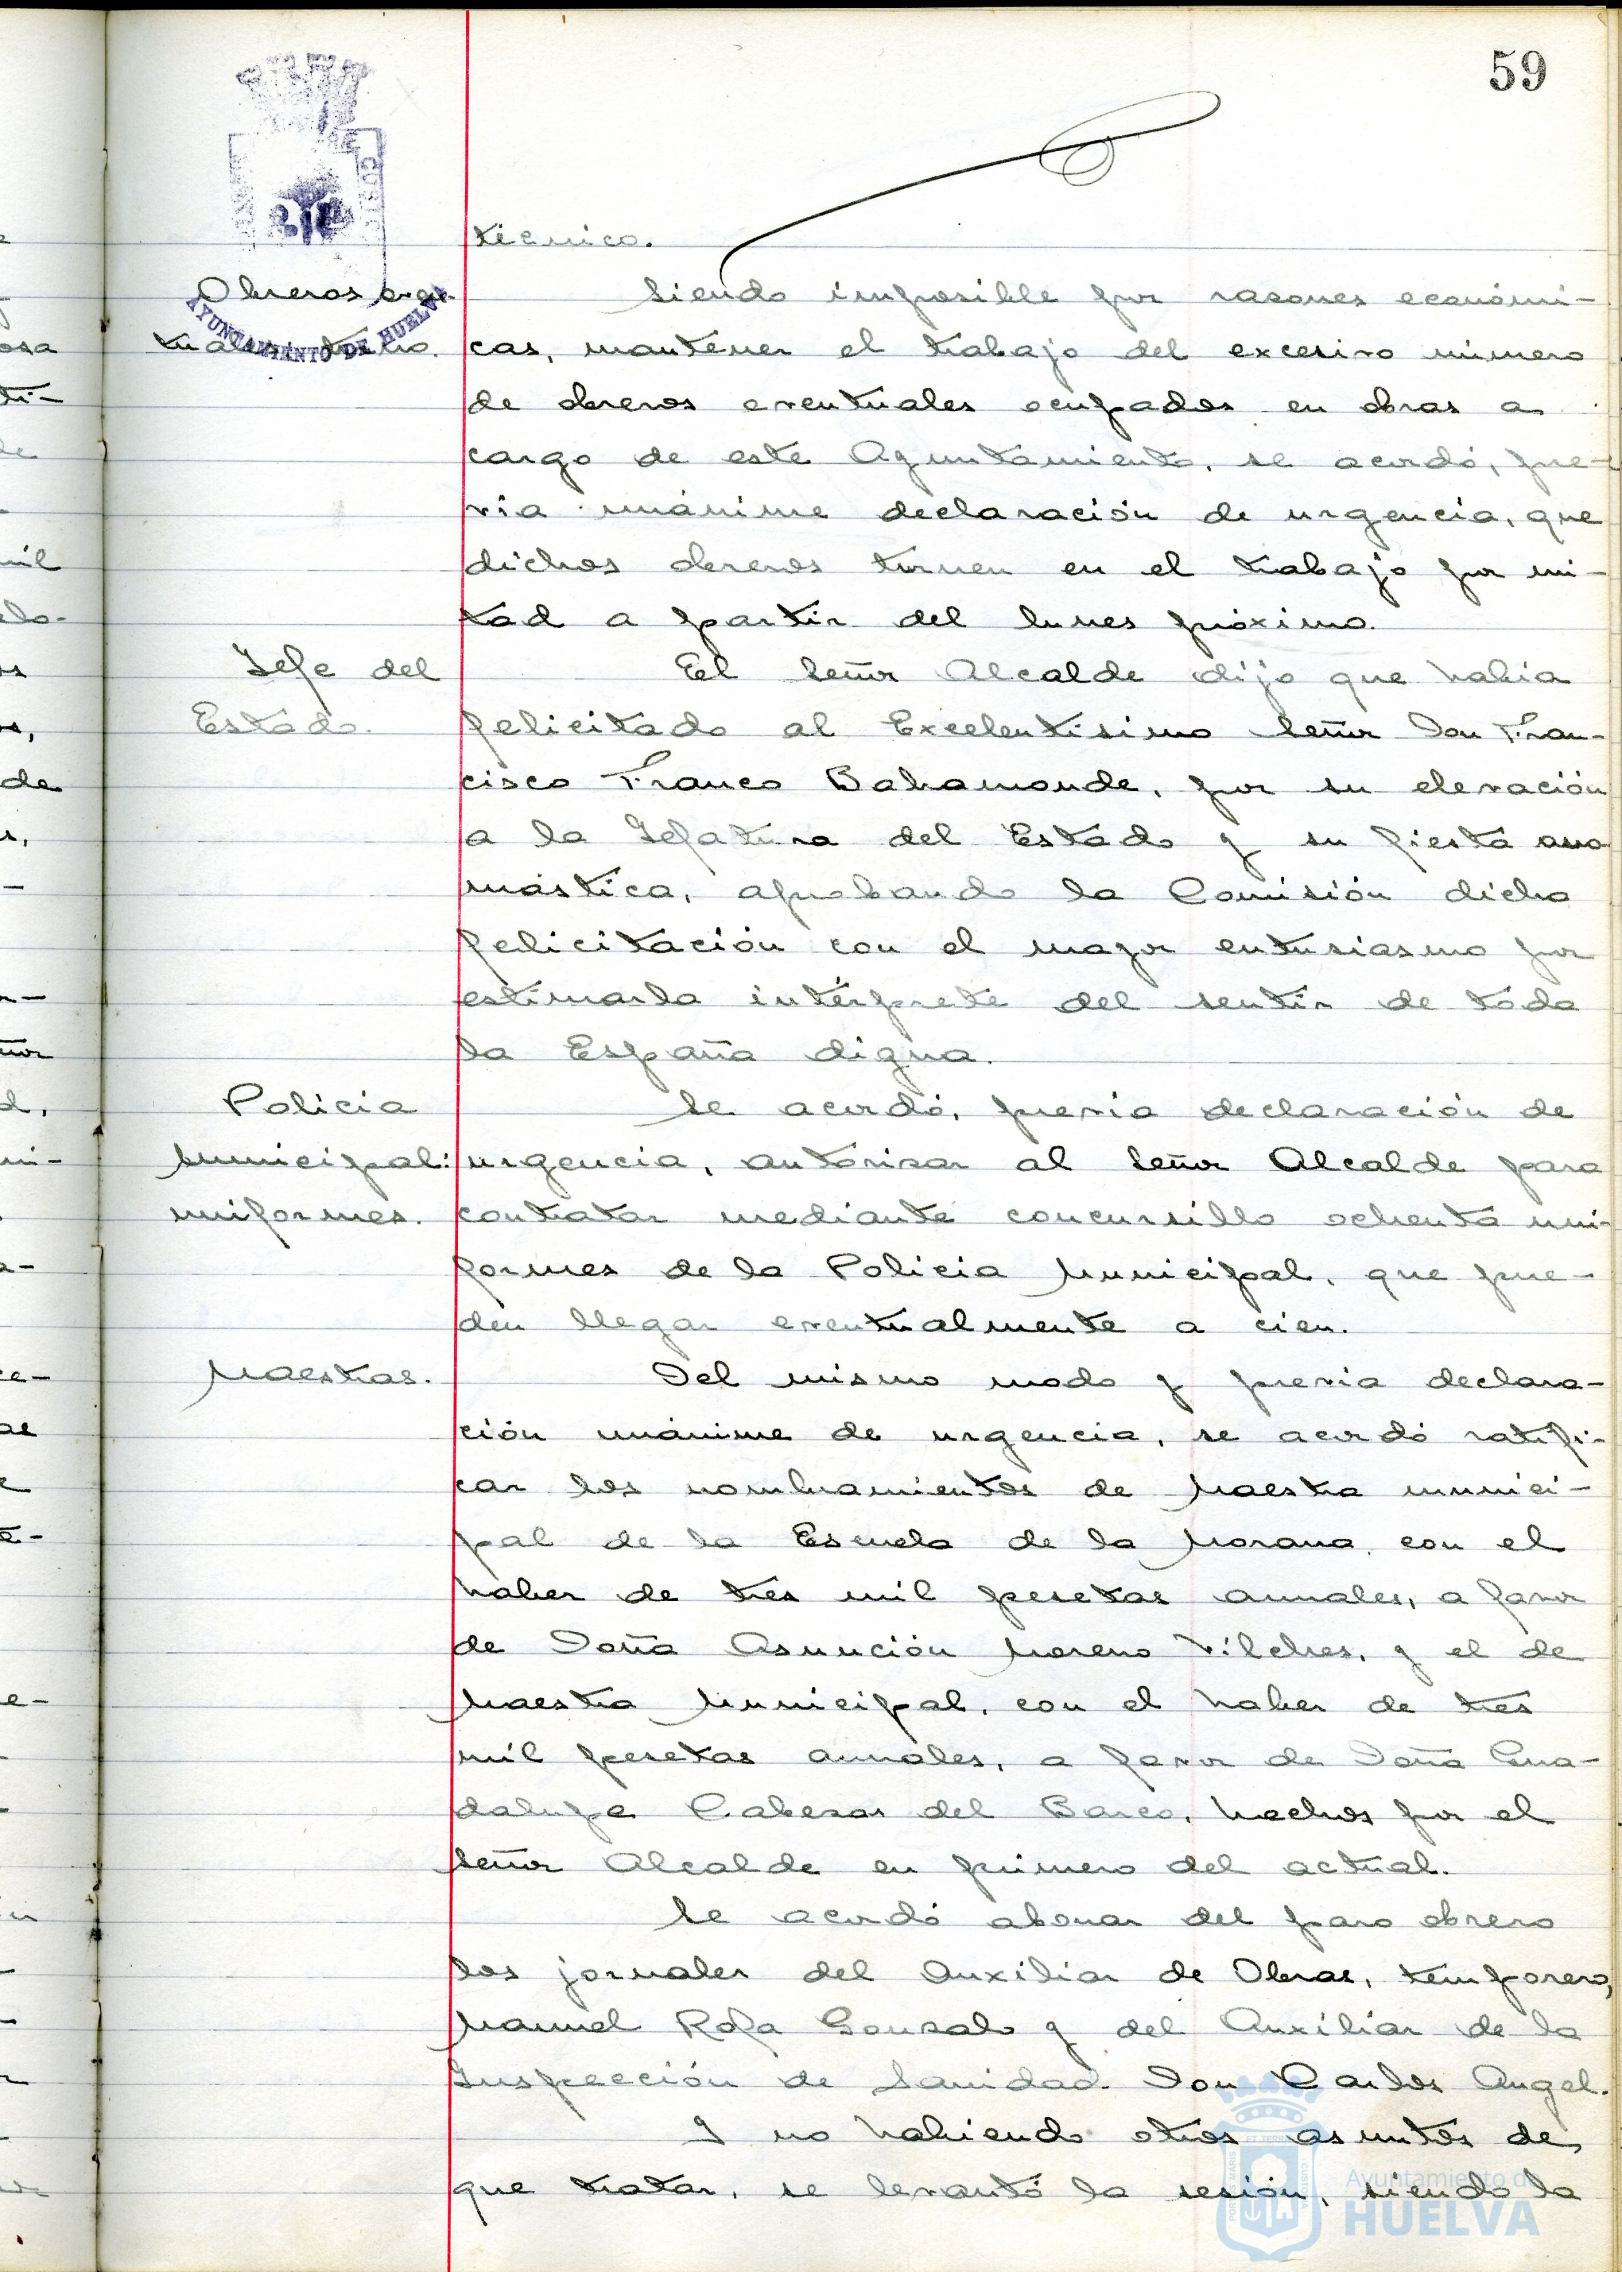 59
técnico.
Obreros even-
tuales: turno.
Siendo imposible por razones económi-
cas, mantener el trabajo del excesivo número
de obreros eventuales ocupados en obras a
cargo de este Ayuntamiento, se acordó, pre-
via unánime declaración de urgencia, que
dichos obreros turnen en el trabajo por mi-
tad a partir del lunes próximo.
Jefe del
Estado.
El Señor Alcalde dijo que habia
felicitado al Excelentísimo Señor Don Fran-
cisco Franco Bahamonde, por su elevación
a la Jefatura del Estado y su fiesta ono
mástica, aprobando la Comisión dicha
felicitación con el mayor entusiasmo por
estimarla intérprete del sentir de toda
la España digna.
Policia
Municipal:
uniformes.
Se acordó, previa declaración de
urgencia, autorizar al Señor Alcalde para
contratar mediante concursillo ochenta uni-
formes de la Policia Municipal, que pue-
den llegar eventualmente a cien.
Maestras.
Del mismo modo y previa declara-
ción unánime de urgencia, se acordó ratifi-
car los nombramientos de Maestra munici-
pal de la Escuela de la Morana, con el
haber de tres mil pesetas anuales, a favor
de Doña Asunción Moreno Vilches, y el de
Maestra Municipal, con el haber de tres
mil pesetas anuales, a favor de Doña Gua-
dalupe Cabezas del Barco, hechos por el
Señor Alcalde en primero del actual.
Se acordó abonar del paro obrero
los jornales del Auxiliar de Obras, temporero,
Manuel Rofa Gonzalo y del Auxiliar de la
Inspección de Sanidad Don Carlos Angel.
Y no habiendo otros asuntos de
que tratar, se levantó la sesión, siendo la
AYUNTAMIENTO DE HUELVA
Ayuntamiento de
HUELVA